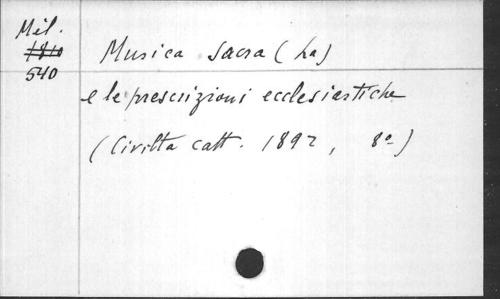 Mél.
1810
540
Musica Sacra (La)
e le prescrizioni ecclesiastiche
(Civilta catt. 1892, 8º)